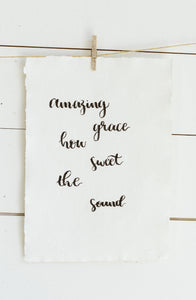 amazing
grace
how
sweet
the
sound